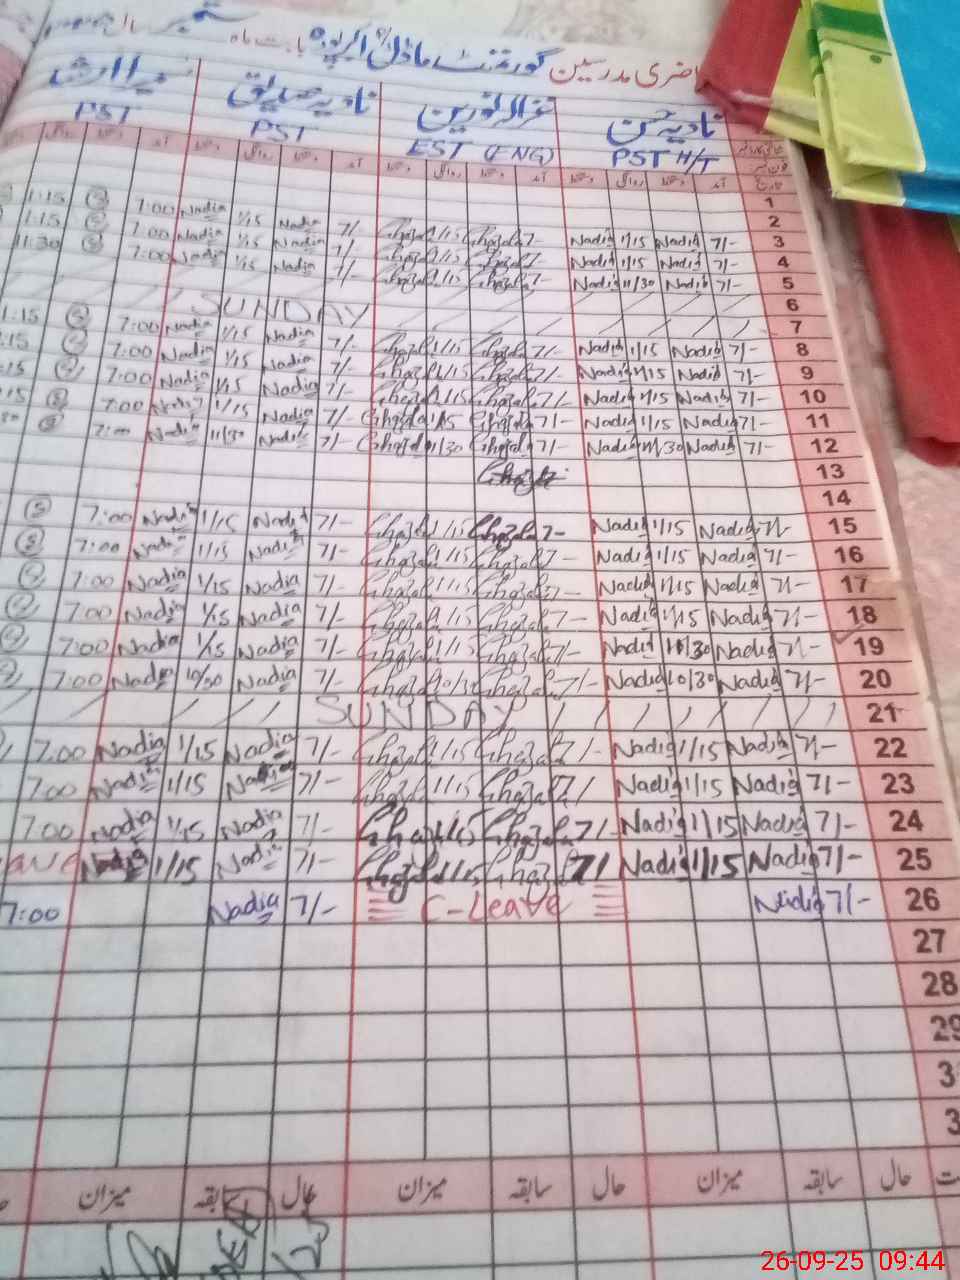 حاضری مدرسین گورنمنٹ ماڈل بابت ماہ ستمبر سال
نادیہ حسن غزالہ نورین نادیہ صدیق
PST H/T EST (ENG) PST PST
تاریخ آمد دستخط روانگی دستخط آمد دستخط روانگی دستخط آمد دستخط روانگی دستخط آمد
1
2
1:15 7:00 Nadia 1/15 Nadia 7/- Ghazala 1/15 Ghazala 7- Nadia 1/15 Nadia 7/- 3
1:15 7:00 Nadia 1/15 Nadia 7/- Ghazala 1/15 Ghazala 7- Nadia 1/15 Nadia 7/- 4
11:30 7:00 Nadia 1/15 Nadia 7/- Ghazala 1/15 Ghazala 7- Nadia 11/30 Nadia 7/- 5
6
SUNDAY 7
1:15 7:00 Nadia 1/15 Nadia 7/- Ghazala 1/15 Ghazala 7/- Nadia 1/15 Nadia 7/- 8
:15 7:00 Nadia 1/15 Nadia 7/- Ghazala 1/15 Ghazala 7/- Nadia 1/15 Nadia 7/- 9
:15 7:00 Nadia 1/15 Nadia 7/- Ghazala 1/15 Ghazala 7/- Nadia 1/15 Nadia 7/- 10
:15 7:00 Nadia 1/15 Nadia 7/- Ghazala 1/15 Ghazala 7/- Nadia 1/15 Nadia 7/- 11
7:00 Nadia 11/30 Nadia 7/- Ghazala 11/30 Ghazala 7/- Nadia 11/30 Nadia 7/- 12
13
14
7:00 Nadia 1/15 Nadia 7/- Ghazala 1/15 Ghazala 7- Nadia 1/15 Nadia 7/- 15
7:00 Nadia 1/15 Nadia 7/- Ghazala 1/15 Ghazala 7- Nadia 1/15 Nadia 7/- 16
7:00 Nadia 1/15 Nadia 7/- Ghazala 1/15 Ghazala 7- Nadia 1/15 Nadia 7/- 17
7:00 Nadia 1/15 Nadia 7/- Ghazala 1/15 Ghazala 7- Nadia 1/15 Nadia 7/- 18
7:00 Nadia 1/15 Nadia 7/- Ghazala 1/15 Ghazala 7/- Nadia 10/30 Nadia 7/- 19
7:00 Nadia 10/30 Nadia 7/- Ghazala 10/30 Ghazala 7/- Nadia 10/30 Nadia 7/- 20
SUNDAY 21
7.00 Nadia 1/15 Nadia 7/- Ghazala 1/15 Ghazala 7/- Nadia 1/15 Nadia 7/- 22
7:00 Nadia 1/15 Nadia 7/- Ghazala 1/15 Ghazala 7/ Nadia 1/15 Nadia 7/- 23
7.00 Nadia 1/15 Nadia 7/- Ghazala 1/15 Ghazala 7/- Nadia 1/15 Nadia 7/- 24
Nadia 1/15 Nadia 7/- Ghazala 1/15 Ghazala 7/ Nadia 1/15 Nadia 7/- 25
7:00 Nadia 7/- C-Leave Nadia 7/- 26
27
28
29
3
3
حال سابقہ میزان حال سابقہ میزان حال سابقہ میزان
26-09-25 09:44